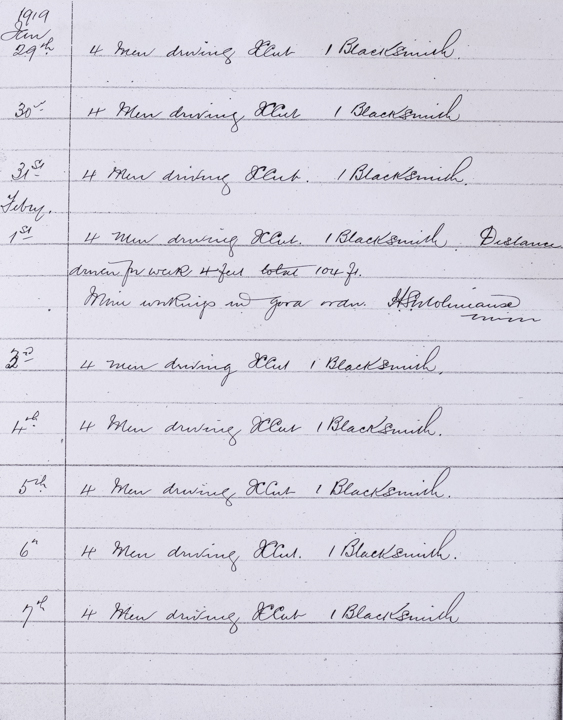 1919
Jan
29th 4 Men driving XCut 1 Blacksmith.
30th 4 Men driving XCut 1 Blacksmith
31st 4 Men driving XCut. 1 Blacksmith.
Febry.
1st 4 Men driving XCut. 1 Blacksmith. Distance
driven for week 4 feet total 104 ft.
Mine workings in good order.
3rd 4 Men driving XCut 1 Blacksmith.
4th 4 Men driving XCut 1 Blacksmith.
5th 4 Men driving XCut 1 Blacksmith.
6th 4 Men driving XCut. 1 Blacksmith.
7th 4 Men driving XCut 1 Blacksmith